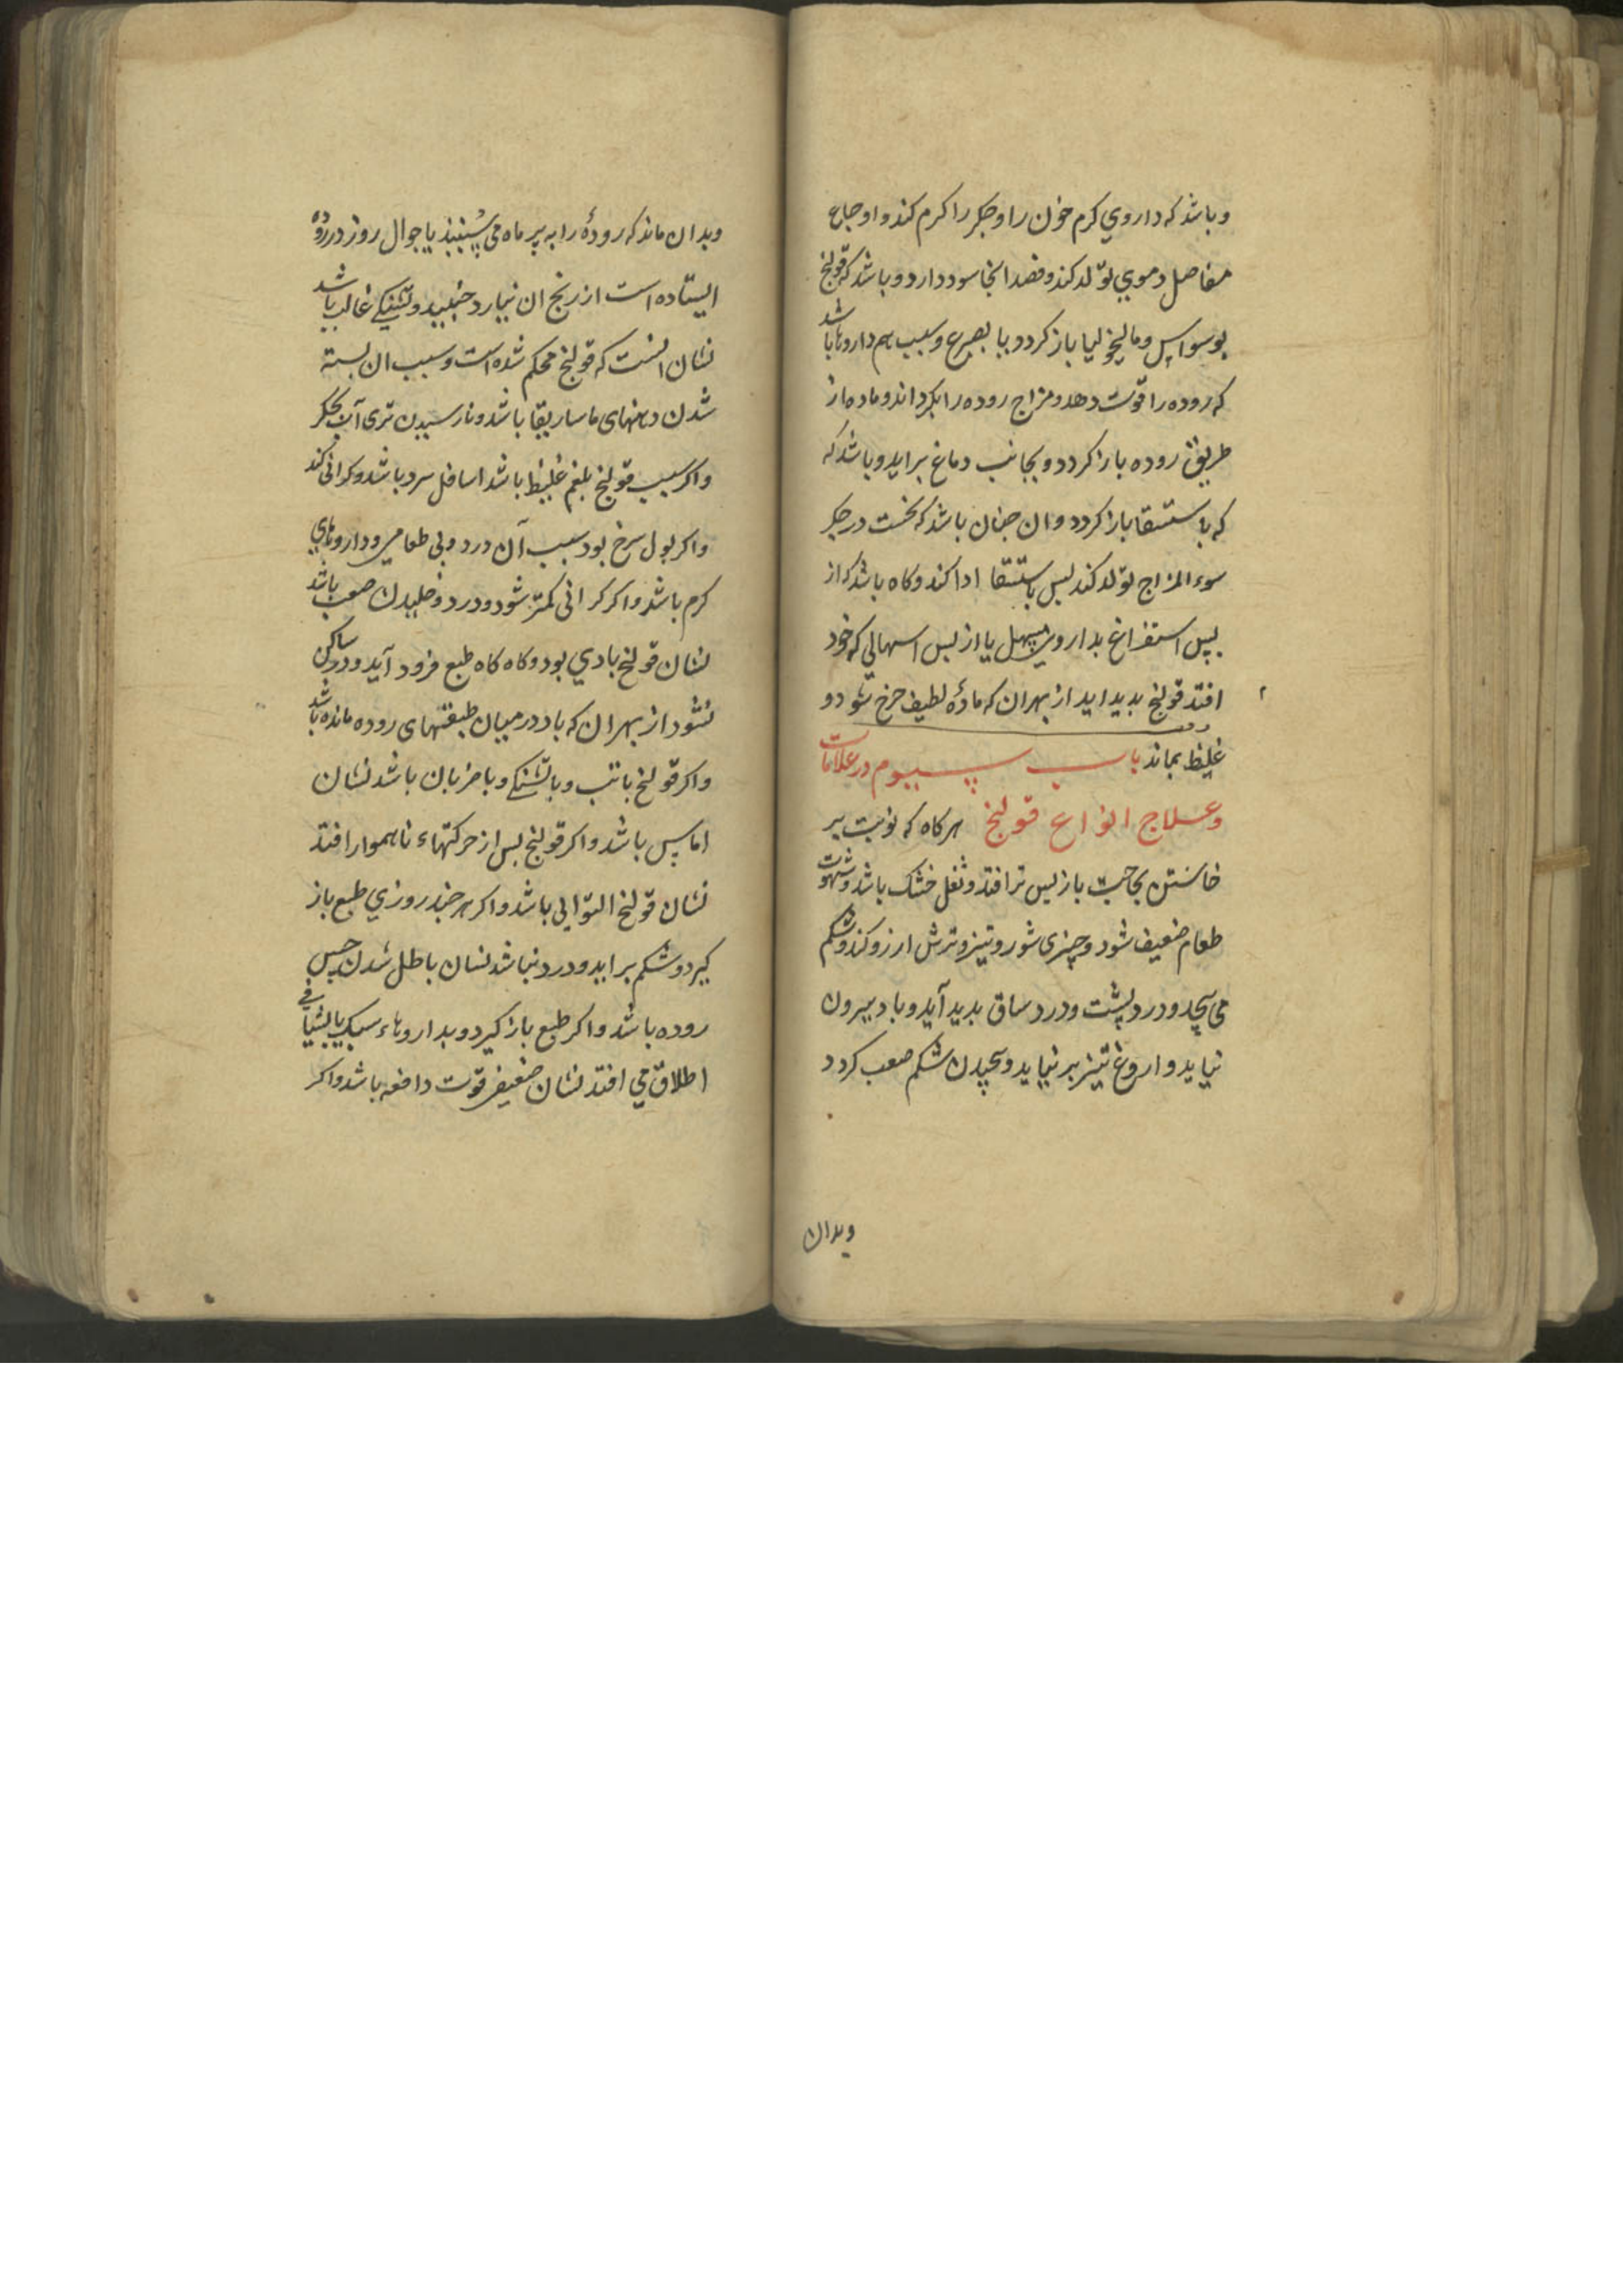 وباشد که داروي کرم خون را وجکر را کرم کند و اوجاع
مفاصل دموي تولد کند و فصد انجا سود دارد و باشد که قولنج
بوسواس و ماليخوليا باز کردد و يا بصرع و سبب هم داروها باشد
که روده را قوت دهد و مزاج روده را بکرداند و ماده از
طريق روده باز کردد و بجانب دماغ برايد و باشد که
که باستسقا باز کردد و ان جنان باشد که نخست در جکر
سوء المزاج تولد کند پس باستسقا ادا کند و کاه باشد که از
پس استفراغ بداروي مسهل يا از پس اسهالي که خود
افتد قولنج بديد ايد از بهر ان که مادهٔ لطيف خرج شود و
غليظ بماند باب سيوم در علامات
وعلاج انواع قولنج هرکاه که نوبت بر
خاستن بحاجت باز پس تر افتد و ثفل خشک باشد و شهوت
طعام ضعيف شود و چيزي شور و تيز و ترش ارزو کند و شکم
مي پيچد و درد پشت و درد ساق بديد آيد و باد بيرون
نيايد و اروغ نيز بر نيايد و پيچيدن شکم صعب کردد
وبدان
وبدان ماند که رودهٔ را به پرماه مي سنبند يا جوال روز در روده
ايستاده است از رنج ان نيارد جنبيد و تشنکي غالب باشد
نشان انست که قولنج محکم شده است و سبب ان بسته
شدن دهنهاي ماساريقا باشد و نارسيدن تري آب بجکر
واکر سبب قولنج بلغم غليظ باشد اسافل سرد باشد و کراني کند
واکر بول سرخ بود سبب آن درد و بي طعامي و داروهاي
کرم باشد و اکر کراني کمتر شود و درد و خليدن صعب باشد
نشان قولنج بادي بود و کاه کاه طبع فرود آيد و درد ساکن
نشود از بهر ان که باد در ميان طبقتهاي روده مانده باشد
واکر قولنج با تب و با تشنکي و با ضربان باشد نشان
اماس باشد و اکر قولنج پس از حرکتهاء ناهموار افتد
نشان قولنج التوايي باشد و اکر هر چند روزي طبع باز
کيرد و شکم برايد و درد نباشد نشان باطل شدن حس
روده باشد و اکر طبع باز کيرد و بداروهاء سبک يا بشيافي
اطلاق مي افتد نشان ضعيفي قوت دافعه باشد و اکر